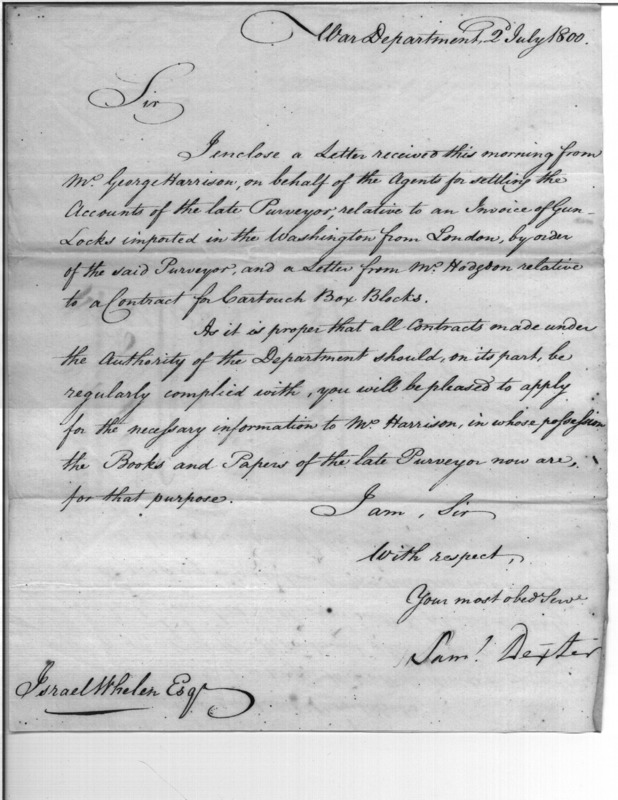 War Department, 2d July 1800.
Sir
I enclose a Letter received this morning from
Mr. George Harrison, on behalf of the Agents for settling the
Accounts of the late Purveyor, relative to an Invoice of Gun-
Locks imported in the Washington from London, by order
of the said Purveyor, and a Letter from Mr. Hodgson relative
to a Contract for Cartouch Box Blocks.
As it is proper that all Contracts made under
the Authority of the Department should, on its part, be
regularly complied with, you will be pleased to apply
for the necessary information to Mr. Harrison, in whose possession
the Books and Papers of the late Purveyor now are,
for that purpose.
I am, Sir
With respect,
Your most obed Servt
Saml. Dexter
Israel Whelen Esqr